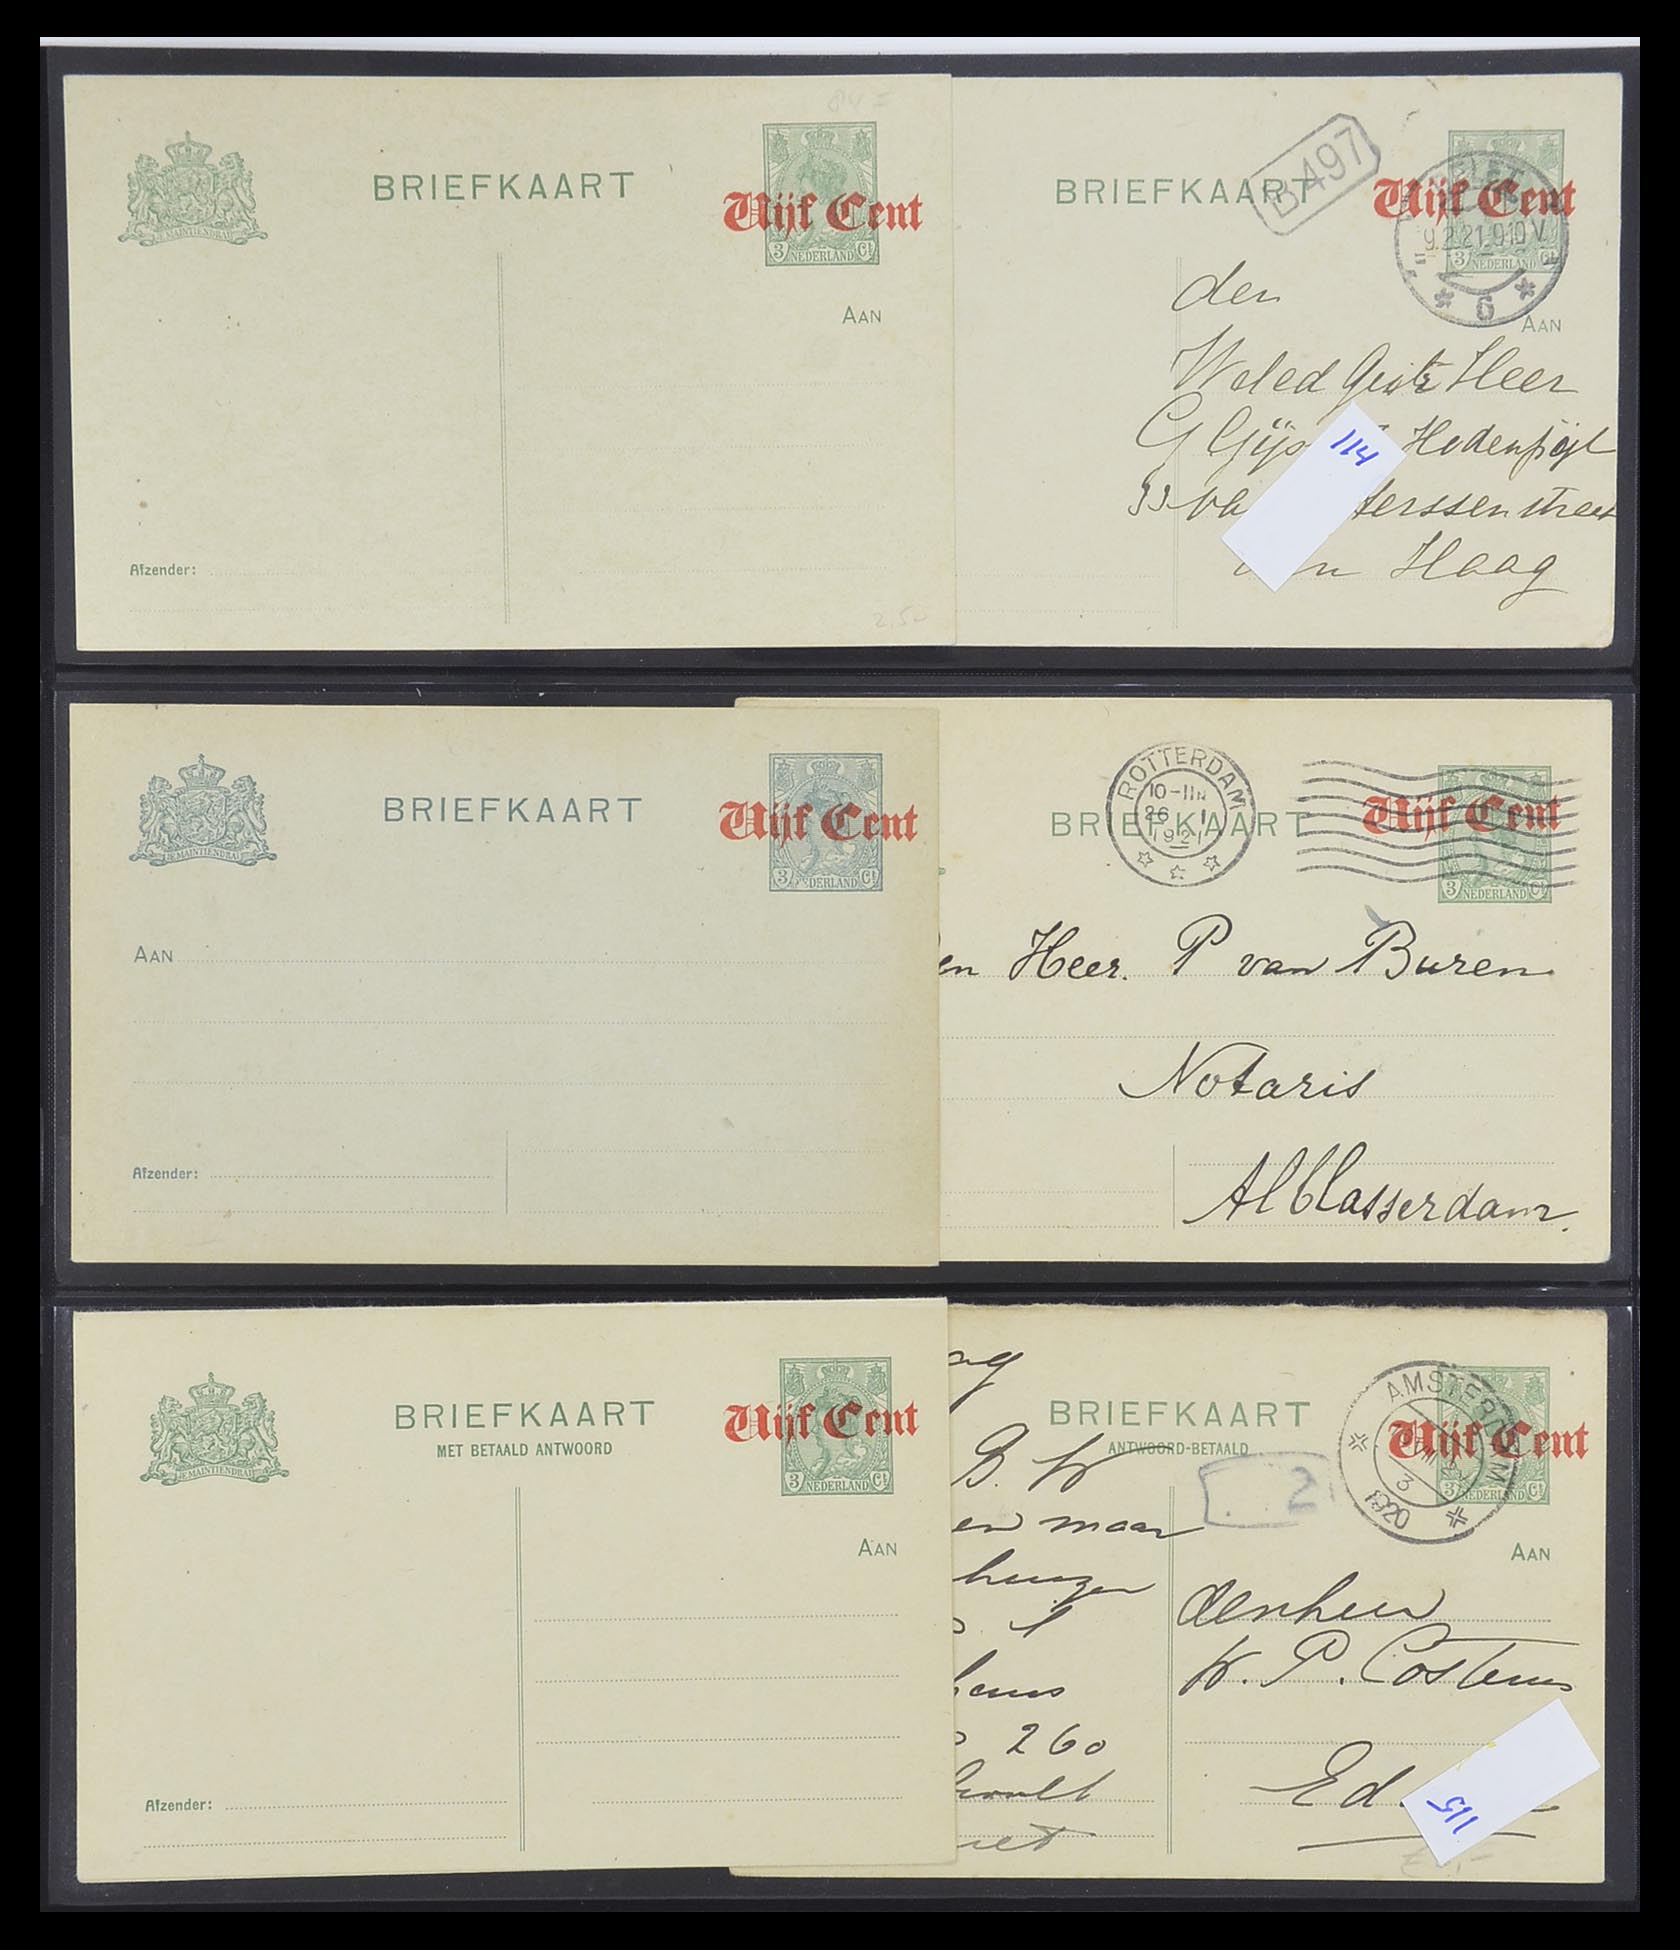 84=
BRIEFKAART
Vijf Cent
3 NEDERLAND Ct
JE MAINTIENDRAI
AAN
Afzender:
2,50
B497
BRIEFKAART
Vijf Cent
9.2.21.9-10V
3 NEDERLAND Ct
6
AAN
den
Weled Gestr Heer
G Gijs Hodenpijl
114
terssenstraat
Haag
BRIEFKAART
Vijf Cent
3 NEDERLAND Ct
JE MAINTIENDRAI
AAN
Afzender:
ROTTERDAM
10-11
26 1
1921
BRIEFKAART
Vijf Cent
3 NEDERLAND Ct
en Heer. P van Buren
Notaris
Alblasserdam.
BRIEFKAART
MET BETAALD ANTWOORD
Vijf Cent
3 NEDERLAND Ct
JE MAINTIENDRAI
AAN
Afzender:
ng
B. W
en maar
huizen
hans
260
BRIEFKAART
ANTWOORD-BETAALD
Vijf Cent
AMSTERDAM
1920
3 NEDERLAND Ct
2
AAN
den heer
W. P. Costerus
Ed
115